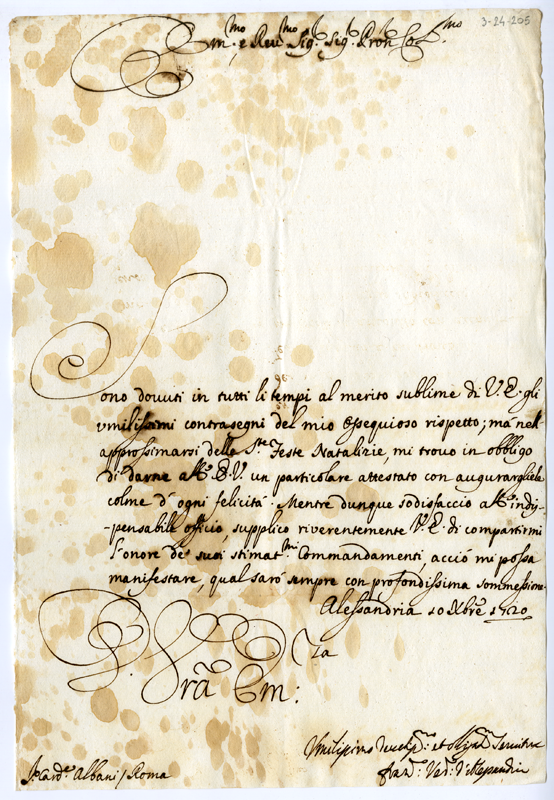 3-24-205
Em.^mo e Rev.^mo Sig.^r Sig.^r Pron Col.^mo
Sono dovuti in tutti li tempi al merito sublime di V. E. gli
umilissimi contrasegni del mio ossequioso rispetto; mà nell'
approssimarsi delle S.^te Feste Natalizie, mi trovo in obbligo
di darne all' E. V. un particolare attestato con augurargliele
colme d' ogni felicità. Mentre dunque sodisfaccio all' indi-
-pensabile officio, supplico riverentemente V. E. di compartirmi
l'onore de' suoi stimat.^mi Commandamenti, acciò mi possa
manifestare, qual sarò sempre con profondissima sommessione
Alessandria 10 Xbre 1720
D. Vra Em:^za
Umilissimo
Card.^e Albani / Roma
d'Alessandria